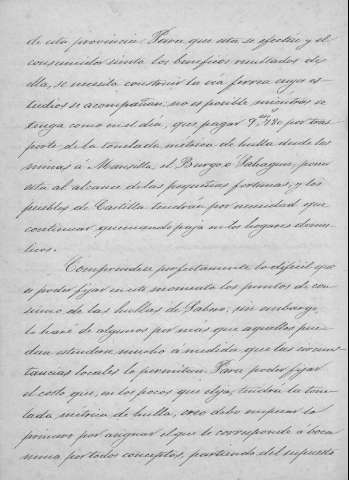 de esta provincia. Para que esta se efectue y el
consumidor sienta los beneficos resultados de
ella, se necesita construir la via ferrea cuyos es-
tudios se acompañan, no es posible mientras se
tenga como en el dia, que pagar por tras-
porte de la tonelada métrica de hulla desde las
minas á Mansilla, el Burgo ó Sahagun, poner
esta al alcance de las pequeñas fortunas, y los
pueblos de Castilla tendrán por necesidad que
continuar quemando paja en los hogares domes-
ticos.
Comprendo perfectamente lo dificil que
es poder fijar en este momento los puntos de con-
sumo de las hullas de Sabero, sin embargo,
lo haré de algunos por mas que aquellos pue-
dan estenderse mucho á medida que las circuns-
tancias locales lo permitan. Para poder fijar
el costo que, en los pocos que elija, tendrá la tone-
lada métrica de hulla, creo debo empezar lo
primero por asignar el que le corresponde á boca
mina por todos conceptos, partiendo del supuesto